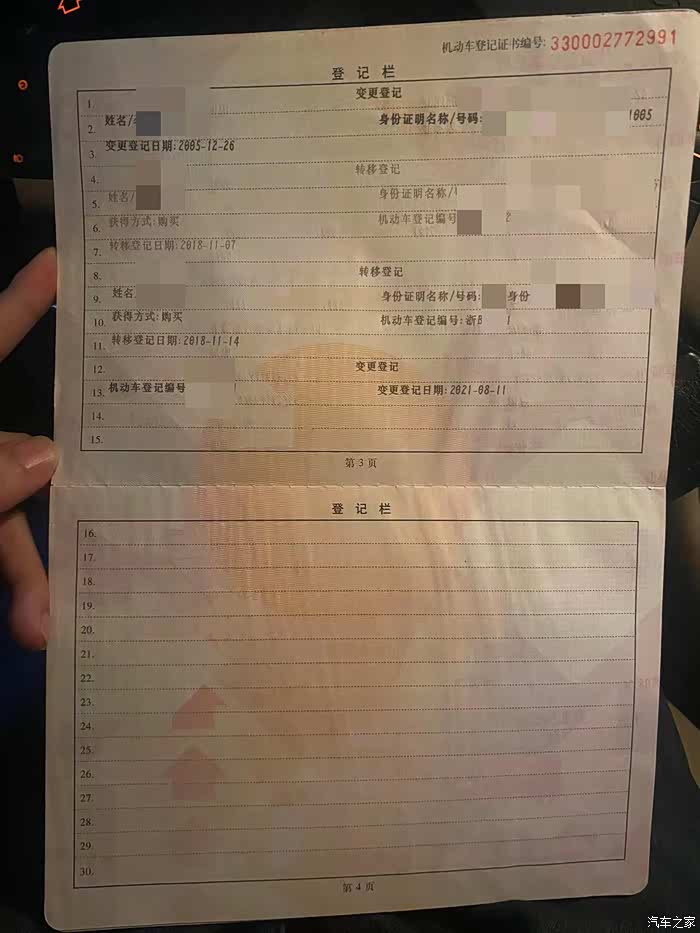 机动车登记证书编号: 330002772991
登 记 栏
1. 变更登记
2. 姓名/ 身份证明名称/号码: 1005
3. 变更登记日期:2005-12-26
4. 转移登记
5. 姓名/ 身份证明名称/
6. 获得方式:购买 机动车登记编号
7. 转移登记日期:2018-11-07
8. 转移登记
9. 姓名 身份证明名称/号码: 身份
10. 获得方式:购买 机动车登记编号:浙B
11. 转移登记日期:2018-11-14
12. 变更登记
13. 机动车登记编号 变更登记日期:2021-08-11
14.
15.
第 3 页
登 记 栏
16.
17.
18.
19.
20.
21.
22.
23.
24.
25.
26.
27.
28.
29.
30.
第 4 页
汽车之家